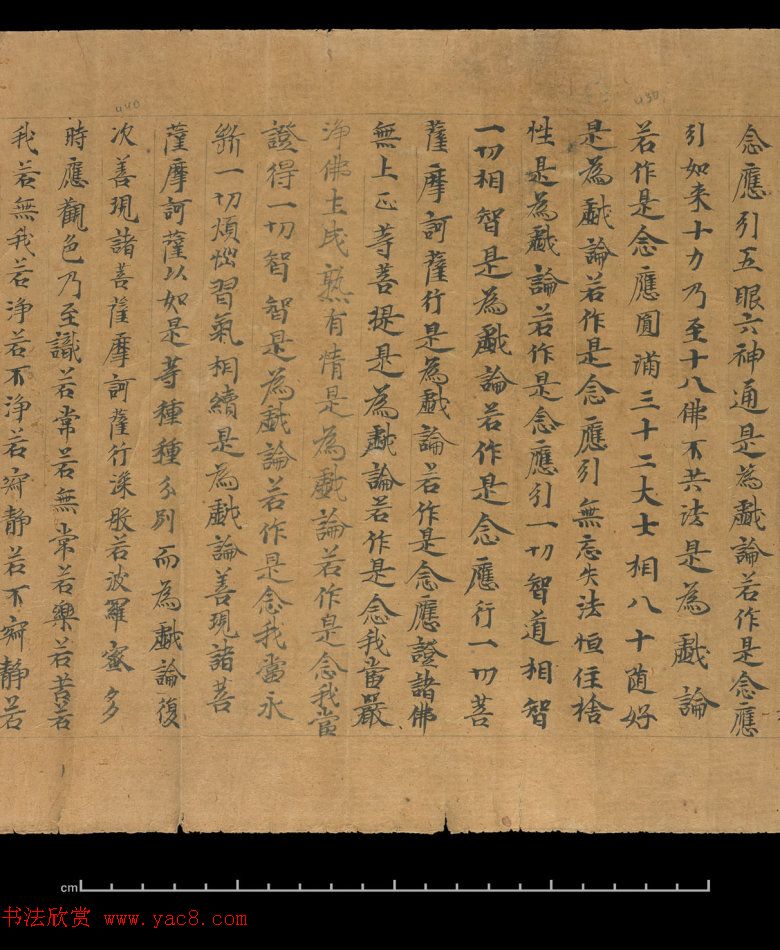 念應引五眼六神通是為戲論若作是念應
引如来十力乃至十八佛不共法是為戲論
若作是念應圓滿三十二大士相八十随好
是為戲論若作是念應引無忘失法恒住捨
性是為戲論若作是念應引一切智道相智
一切相智是為戲論若作是念應行一切菩
薩摩訶薩行是為戲論若作是念應證諸佛
無上正等菩提是為戲論若作是念我當嚴
淨佛土成熟有情是為戲論若作是念我當
證得一切智智是為戲論若作是念我當永
斷一切煩惱習氣相續是為戲論善現諸菩
薩摩訶薩以如是等種種分別而為戲論復
次善現諸菩薩摩訶薩行深般若波羅蜜多
時應觀色乃至識若常若無常若樂若苦若
我若無我若淨若不淨若寂靜若不寂靜若
cm
书法欣赏 www.yac8.com